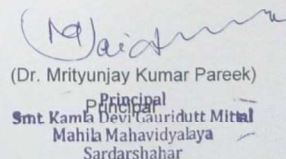 (Dr. Mrityunjay Kumar Pareek)
Principal
Principal
Smt. Kamla Devi Gauridutt Mittal
Mahila Mahavidyalaya
Sardarshahar